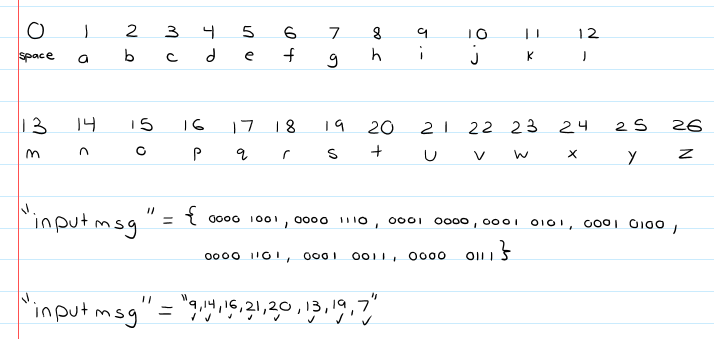 0 1 2 3 4 5 6 7 8 9 10 11 12
space a b c d e f g h i j k l
13 14 15 16 17 18 19 20 21 22 23 24 25 26
m n o p q r s t u v w x y z
"inputmsg" = { 0000 1001, 0000 1110, 0001 0000, 0001 0101, 0001 0100,
0000 1101, 0001 0011, 0000 0111 }
"inputmsg" = "9,14,16,21,20,13,19,7"